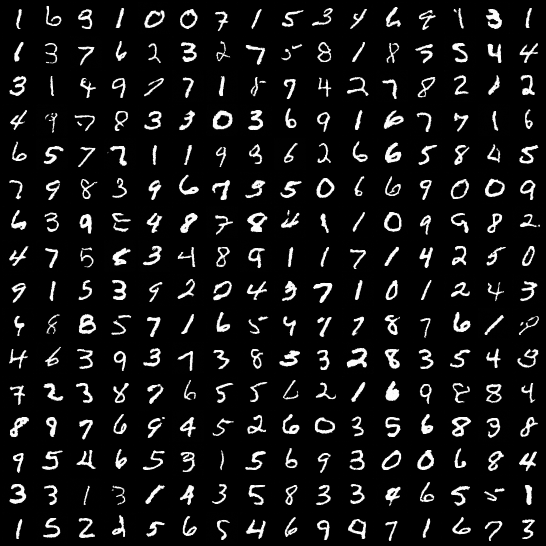 1 6 9 1 0 0 7 1 5 3 4 6 9 1 3 1
1 3 7 6 2 3 2 7 5 8 1 8 5 5 4 4
3 1 4 9 7 7 1 8 7 4 2 7 8 2 1 2
4 9 7 8 3 3 0 3 6 9 1 6 7 7 1 6
6 5 7 7 1 1 9 9 6 2 6 6 5 8 4 5
7 9 8 3 9 6 7 3 5 0 6 6 9 0 0 9
6 3 9 8 4 8 7 8 4 1 1 0 9 9 8 2
4 7 5 8 3 4 8 9 1 1 7 1 4 2 5 0
9 1 5 3 9 2 0 4 3 7 1 0 1 2 4 3
4 8 8 5 7 1 6 5 4 7 7 8 7 6 1
4 6 3 9 3 7 3 8 3 3 2 8 3 5 4 9
7 2 3 8 7 6 5 5 6 2 1 6 9 8 8 4
8 9 7 6 9 4 5 2 6 0 3 5 6 8 3 8
9 5 4 6 5 3 1 5 6 9 3 0 0 6 8 4
3 3 1 3 1 4 3 5 8 3 3 4 6 5 5 1
1 5 2 2 5 6 5 4 6 9 0 7 1 6 7 3